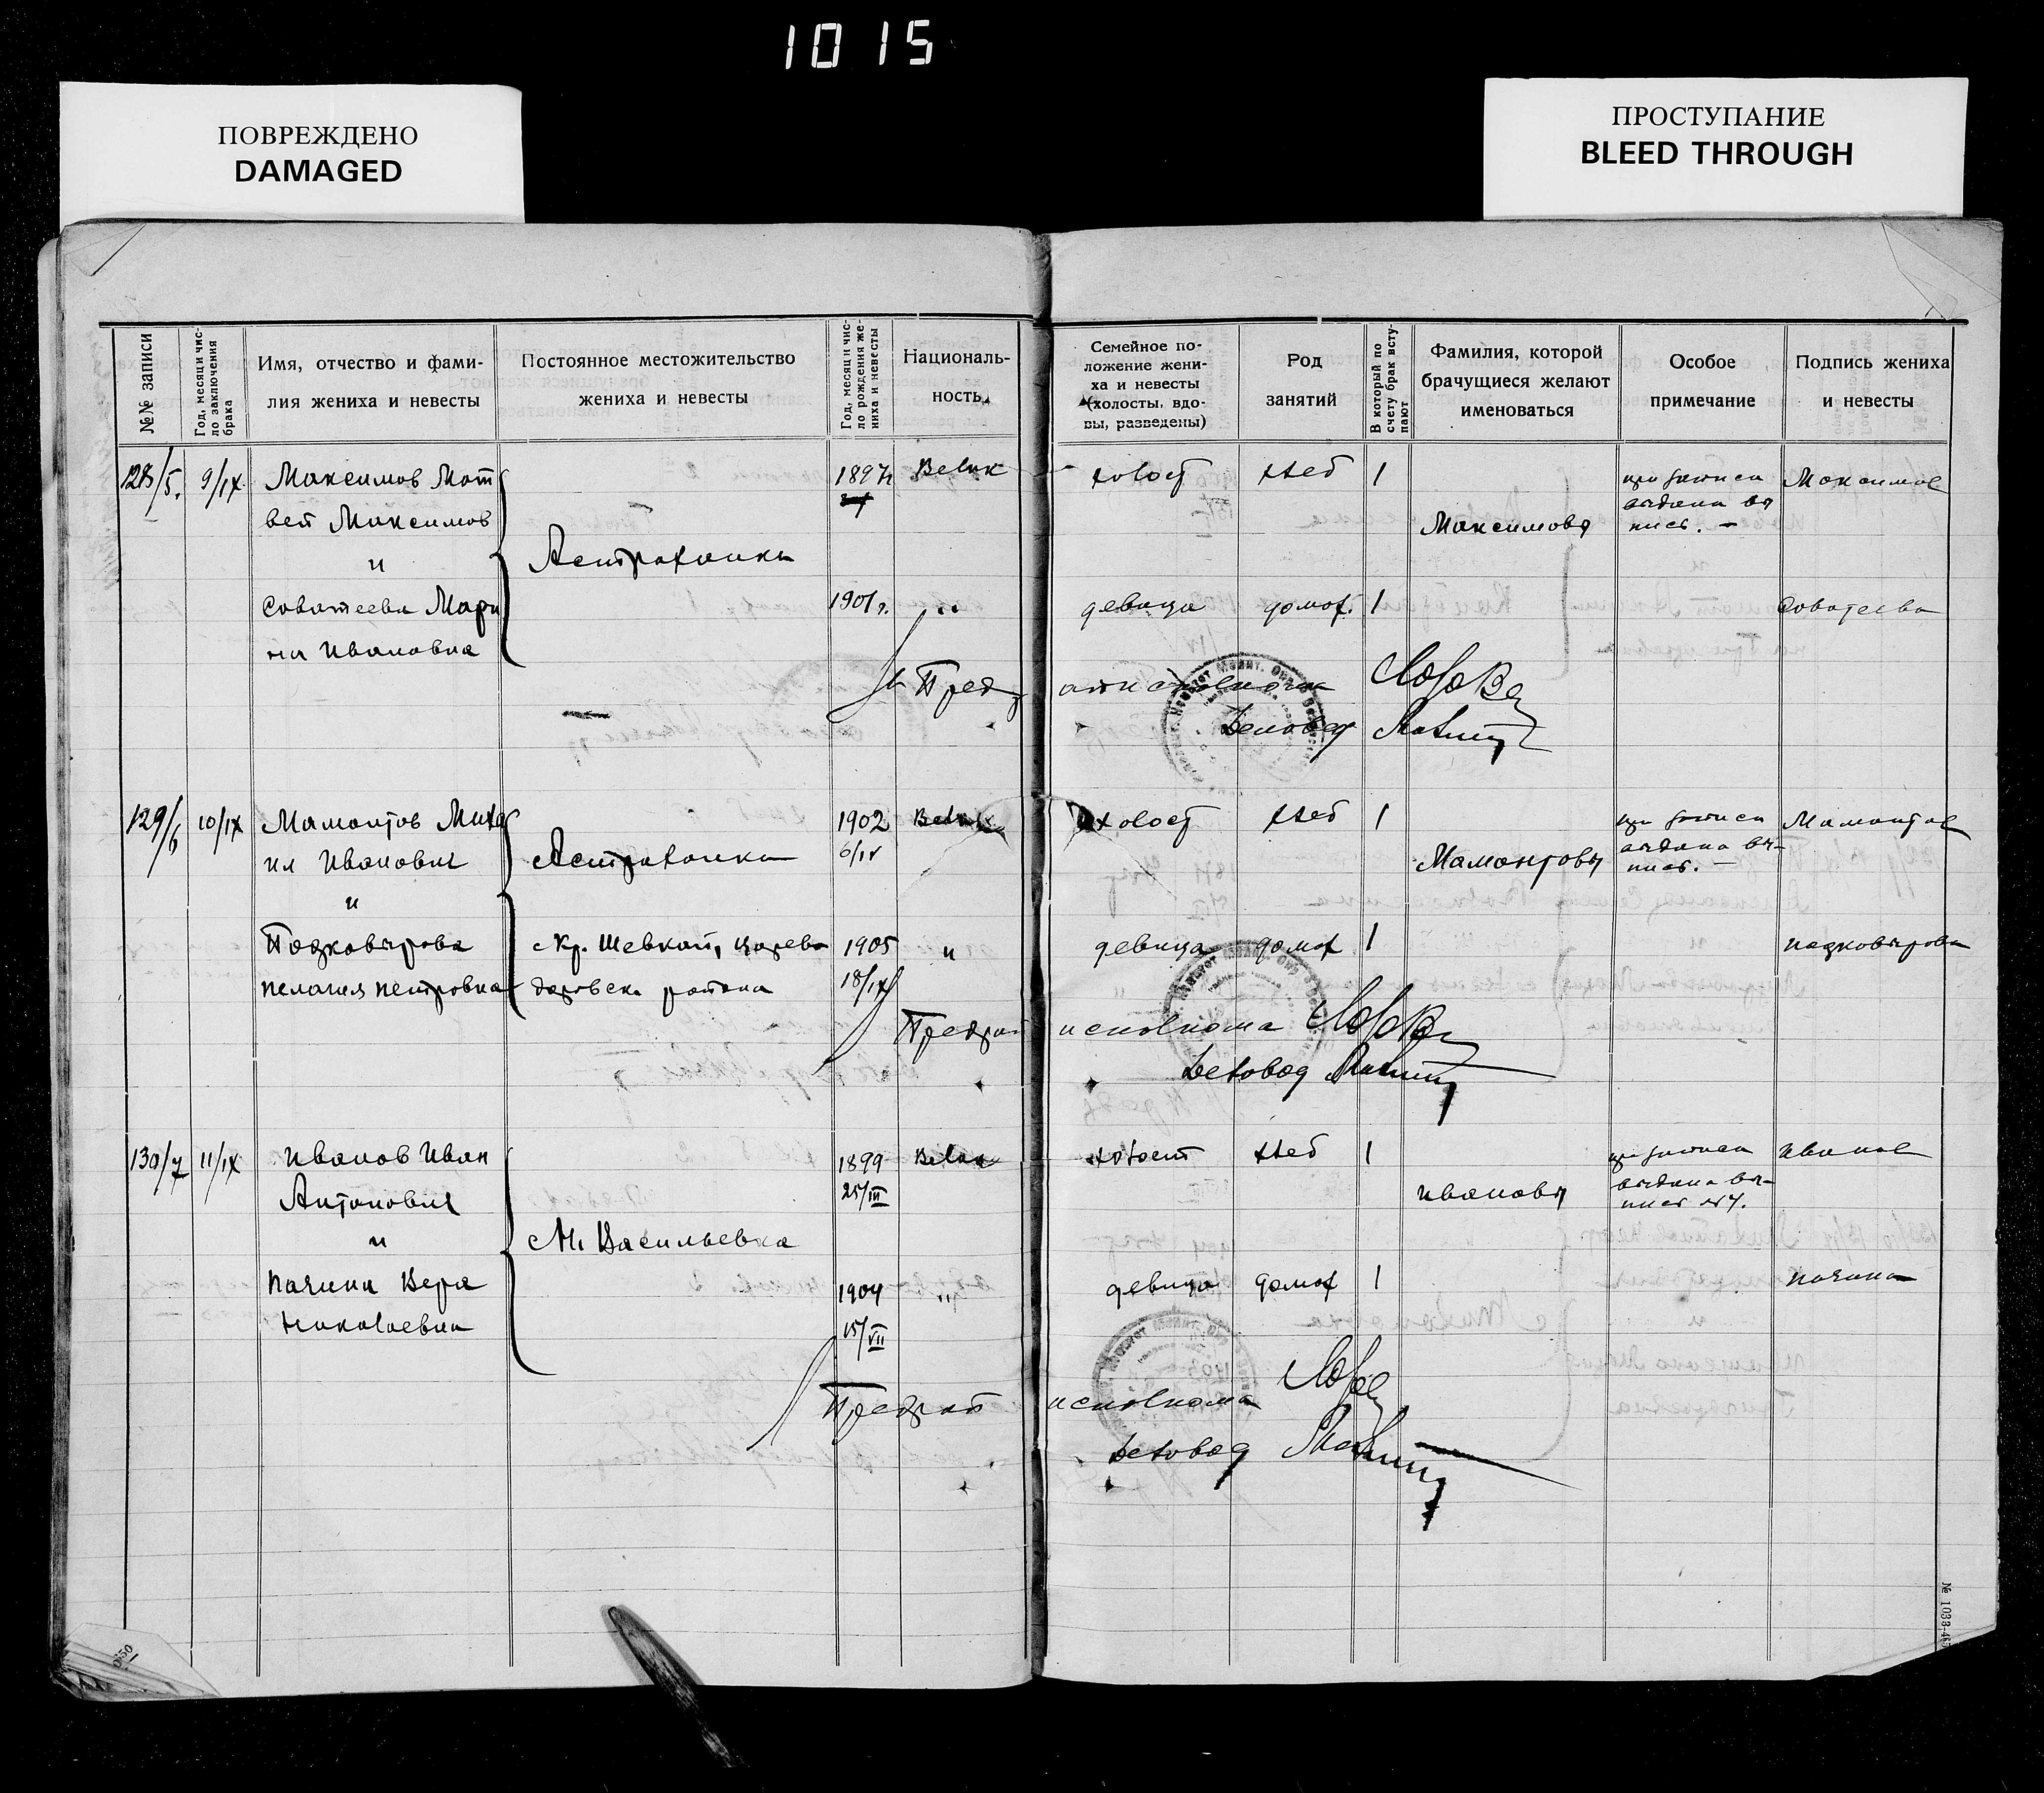 1015
ПОВРЕЖДЕНО
DAMAGED
ПРОСТУПАНИЕ
BLEED THROUGH
№№ записи
Год, месяц и чис-
ло заключения
брака
Имя, отчество и фами-
лия жениха и невесты
Постоянное местожительство
жениха и невесты
Год, месяц и чис-
ло рождения же-
ниха и невесты
Националь-
ность
Семейное по-
ложение жени-
ха и невесты
(холосты, вдо-
вы, разведены)
Род
занятий
В который по
счету брак всту-
пают
Фамилия, которой
брачущиеся желают
именоваться
Особое
примечание
Подпись жениха
и невесты
128/5.
9/IX
Максимов Мат
вей Максимов
и
Саватеева Мари
на Ивановна
Астраханка
1897
1901 г.
Велик
"
холост
хлеб
1
девица
домох.
1
Максимовы
при записи
выдана вы
пись. —
Максимов
Саватеева
Пред
Деловод
129/6
10/IX
Мамонтов Миха
ил Иванович
и
Подковырова
Пелагея Петровна
Астраханка
Шевкай, Царево
даровск. района
1902
6/IV
1905
18/IX
Велик
"
холост
хлеб
1
девица
домох
1
Мамонтовы
при записи
выдана вы-
пись. —
Мамонтов
Подковырова
Предрай исполкома
Деловод
130/7
11/IX
Иванов Иван
Антонович
и
Пачина Вера
Николаевна
М. Васильевка
1899
25/III
1904
15/VII
Велик
"
холост
хлеб
1
девица
домох
1
Ивановы
при записи
выдана вы-
пись №7.
Иванов
Пачина
Предрай исполкома
Деловод